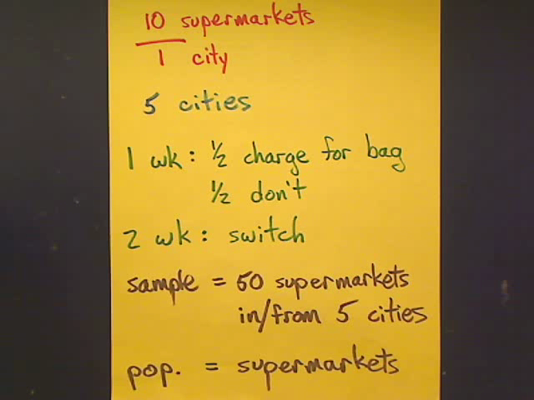 10 supermarkets
1 city
5 cities
1 wk: ½ charge for bag
½ don't
2 wk: switch
sample = 50 supermarkets
in/from 5 cities
pop. = supermarkets